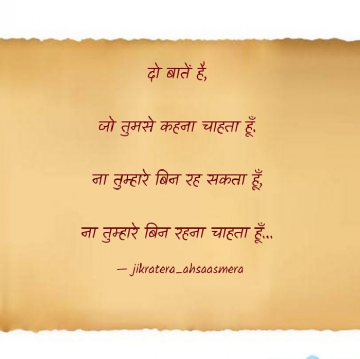 दो बातें है,
जो तुमसे कहना चाहता हूँ.
ना तुम्हारे बिन रह सकता हूँ,
ना तुम्हारे बिन रहना चाहता हूँ...
— jikratera_ahsaasmera